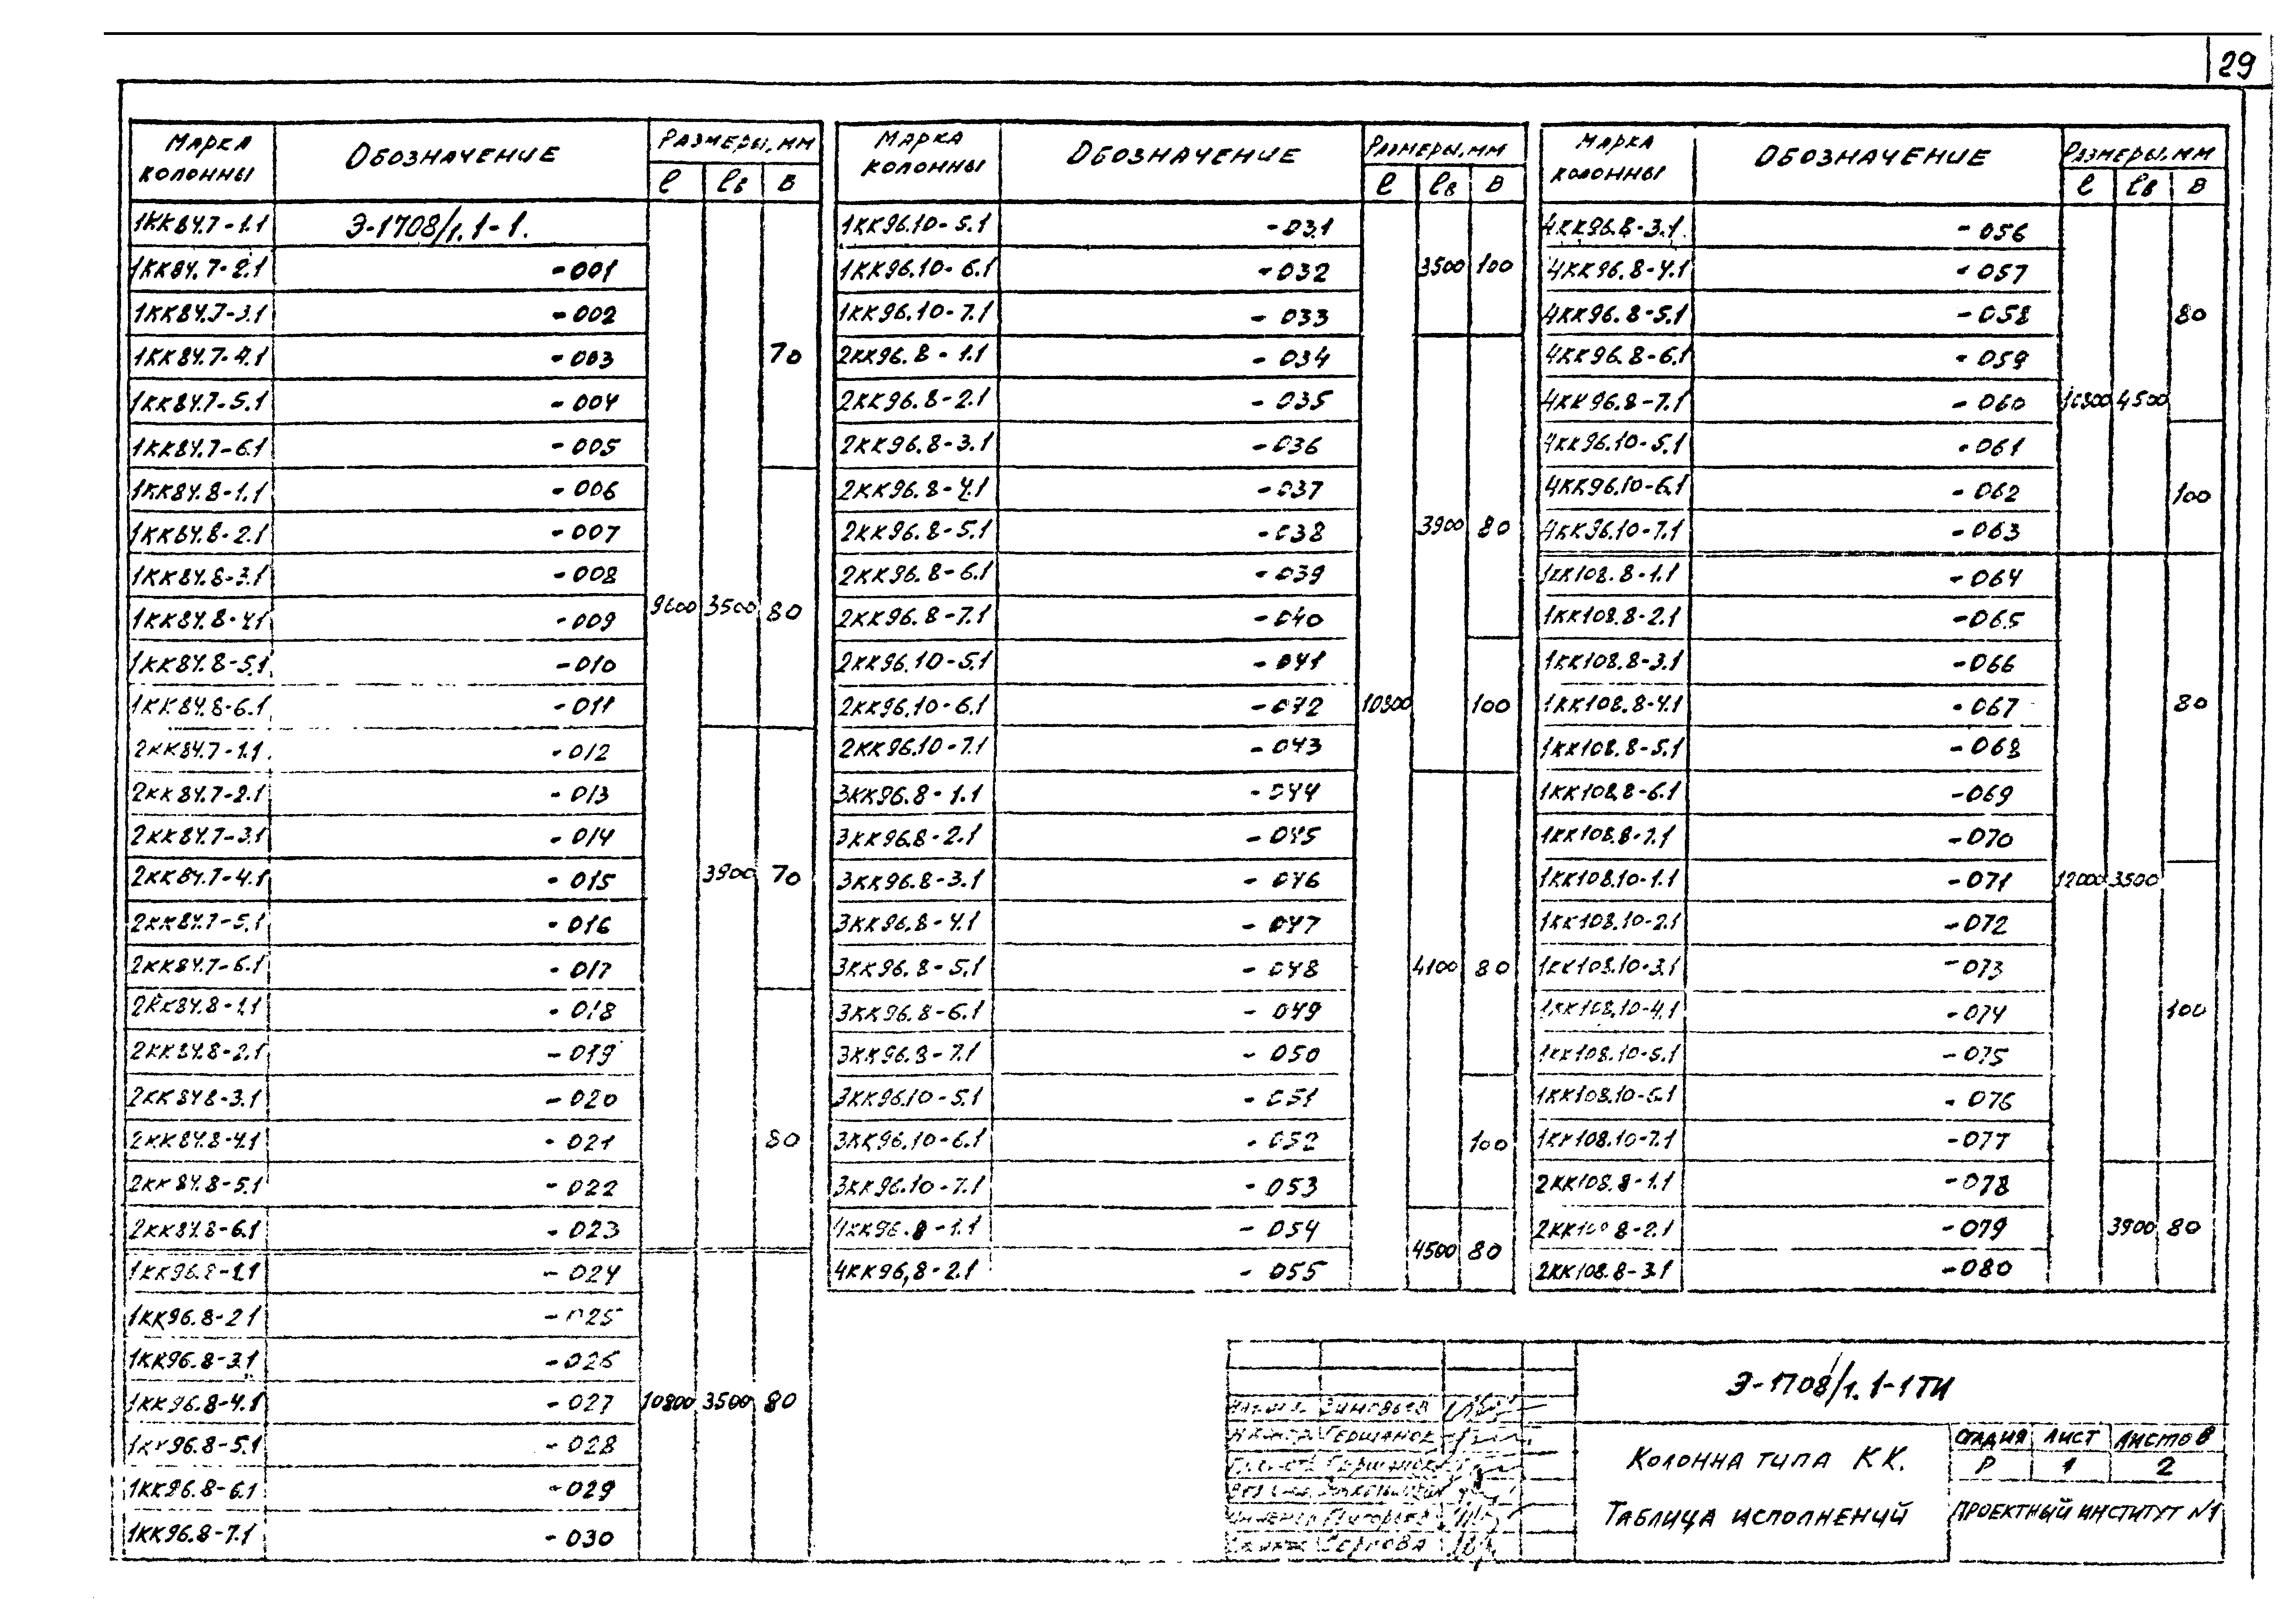 29
МАРКА КОЛОННЫ ОБОЗНАЧЕНИЕ РАЗМЕРЫ, ММ
ℓ ℓв В
1КК84.7-1.1 Э-1708/1.1-1.
1КК84.7-2.1 -001
1КК84.7-3.1 -002
1КК84.7-4.1 -003 70
1КК84.7-5.1 -004
1КК84.7-6.1 -005
1КК84.8-1.1 -006
1КК84.8-2.1 -007
1КК84.8-3.1 -008
1КК84.8-4.1 -009 9600 3500 80
1КК84.8-5.1 -010
1КК84.8-6.1 -011
2КК84.7-1.1 -012
2КК84.7-2.1 -013
2КК84.7-3.1 -014
2КК84.7-4.1 -015 3900 70
2КК84.7-5.1 -016
2КК84.7-6.1 -017
2КК84.8-1.1 -018
2КК84.8-2.1 -019
2КК84.8-3.1 -020
2КК84.8-4.1 -021 80
2КК84.8-5.1 -022
2КК84.8-6.1 -023
1КК96.8-1.1 -024
1КК96.8-2.1 -025
1КК96.8-3.1 -026
1КК96.8-4.1 -027 10800 3500 80
1КК96.8-5.1 -028
1КК96.8-6.1 -029
1КК96.8-7.1 -030
МАРКА КОЛОННЫ ОБОЗНАЧЕНИЕ РАЗМЕРЫ, ММ
ℓ ℓв В
1КК96.10-5.1 -031
1КК96.10-6.1 -032 3500 100
1КК96.10-7.1 -033
2КК96.8-1.1 -034
2КК96.8-2.1 -035
2КК96.8-3.1 -036
2КК96.8-4.1 -037
2КК96.8-5.1 -038 3900 80
2КК96.8-6.1 -039
2КК96.8-7.1 -040
2КК96.10-5.1 -041
2КК96.10-6.1 -042 10800 100
2КК96.10-7.1 -043
3КК96.8-1.1 -044
3КК96.8-2.1 -045
3КК96.8-3.1 -046
3КК96.8-4.1 -047
3КК96.8-5.1 -048 4100 80
3КК96.8-6.1 -049
3КК96.8-7.1 -050
3КК96.10-5.1 -051
3КК96.10-6.1 -052 100
3КК96.10-7.1 -053
4КК96.8-1.1 -054
4500 80
4КК96,8-2.1 -055
МАРКА КОЛОННЫ ОБОЗНАЧЕНИЕ РАЗМЕРЫ, ММ
ℓ ℓв В
4КК96.8-3.1 -056
4КК96.8-4.1 -057
4КК96.8-5.1 -058 80
4КК96.8-6.1 -059
4КК96.8-7.1 -060 10800 4500
4КК96.10-5.1 -061
4КК96.10-6.1 -062 100
4КК96.10-7.1 -063
1КК108.8-1.1 -064
1КК108.8-2.1 -065
1КК108.8-3.1 -066
1КК108.8-4.1 -067 80
1КК108.8-5.1 -068
1КК108.8-6.1 -069
1КК108.8-7.1 -070
1КК108.10-1.1 -071 12000 3500
1КК108.10-2.1 -072
1КК108.10-3.1 -073
1КК108.10-4.1 -074 100
1КК108.10-5.1 -075
1КК108.10-6.1 -076
1КК108.10-7.1 -077
2КК108.8-1.1 -078
2КК108.8-2.1 -079 3900 80
2КК108.8-3.1 -080
Э-1708/1.1-1ТИ
КОЛОННА ТИПА КК.
ТАБЛИЦА ИСПОЛНЕНИЙ
СТАДИЯ ЛИСТ ЛИСТОВ
Р 1 2
ПРОЕКТНЫЙ ИНСТИТУТ №1
ЗИНОВЬЕВ
ГЕРШАНОК
ГЕРШАНОК
ИНЖЕНЕР ГРИГОРЬЕВА
СЕРГОВА